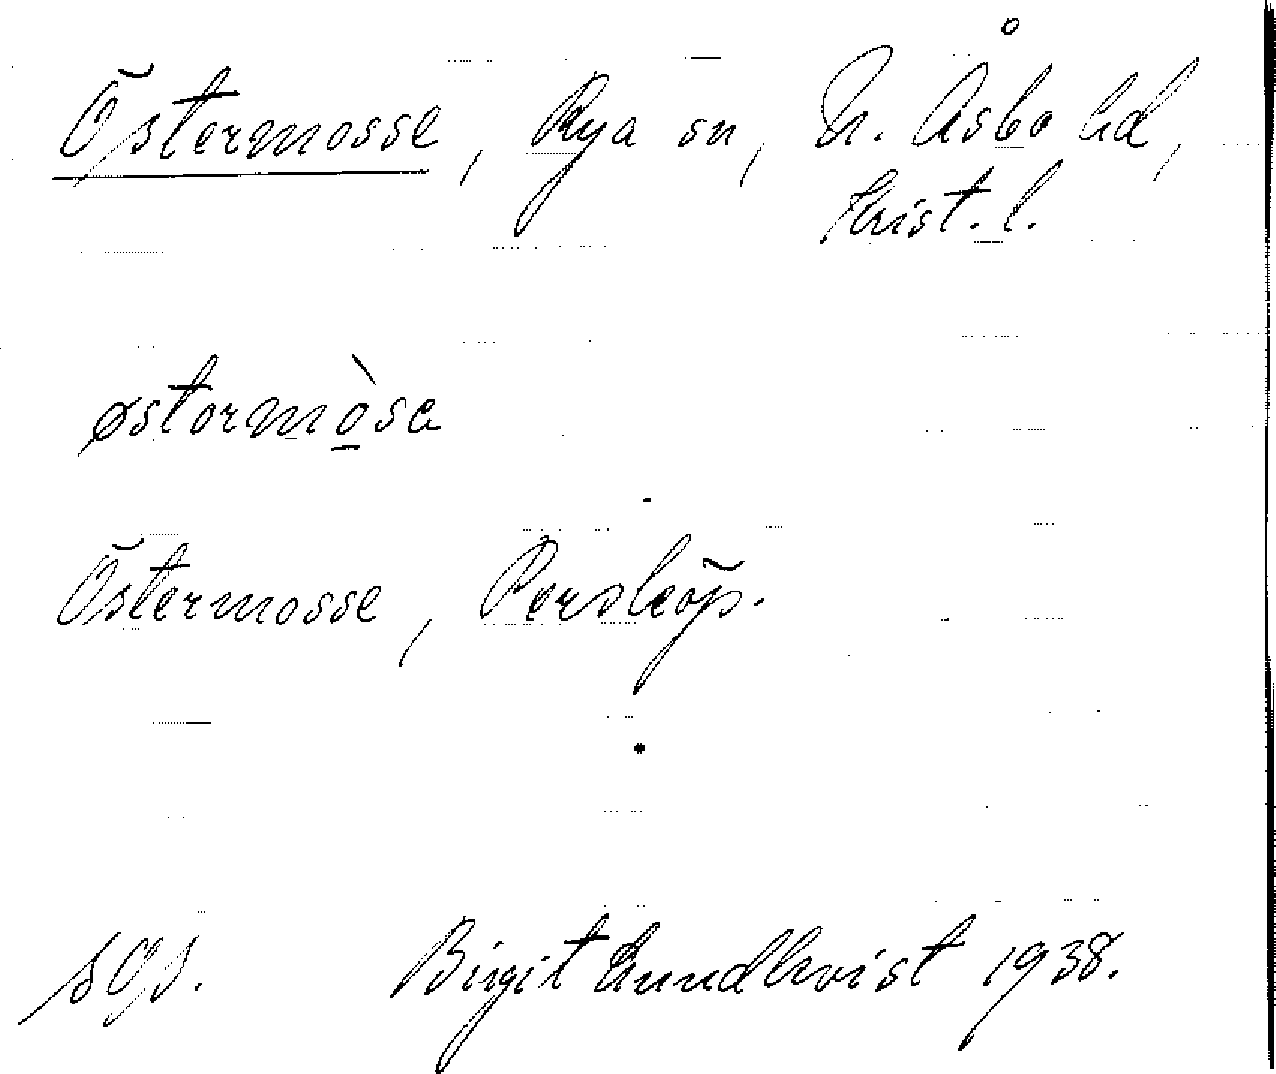 Östermosse, Rya sn, N. Åsbo hd,
Krist. l.
østormò̱sa
Östermosse, Perslöp.
sgs. Birgit Lundkvist 1938.